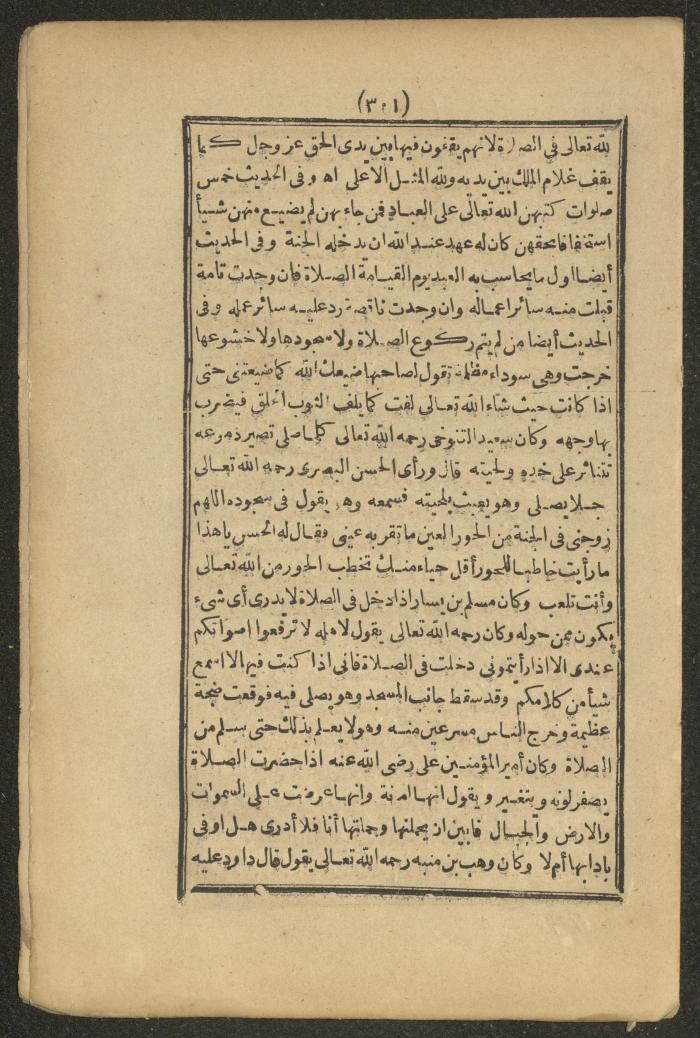 (٣٠١)
لله تعالى في الصلاة لانهم يقفون فيها بين يدى الحق عز وجل كما
يقف غلام الملك بين يديه ولله المثل الأعلى اه وفى الحديث خمس
صلوات كتبهن الله تعالى على العباد فمن جاء بهن لم يضيع منهن شيأ
استخفافا بحقهن كان له عهد عند الله ان يدخله الجنة وفى الحديث
أيضا اول ما يحاسب به العبد يوم القيامة الصلاة فان وجدت تامة
قبلت منه سائر اعماله وان وجدت ناقصة رد عليه سائر عمله وفى
الحديث أيضا من لم يتم ركوع الصلاة ولا سجودها ولا خشوعها
خرجت وهى سوداء مظلمة تقول لصاحبها ضيعك الله كما ضيعتنى حتى
اذا كانت حيث شاء الله تعالى لفت كما يلف الثوب الخلق فيضرب
بها وجهه وكان سعيد التنوخى رحمه الله تعالى كلما صلى تصير دموعه
تتناثر على خده ولحيته قال ورأى الحسن البصرى رحمه الله تعالى
جلا يصلى وهو يعبث بلحيته فسمعه وهو يقول فى سجوده اللهم
زوجنى فى الجنة من الحور العين ما تقر به عينى فقال له الحسن يا هذا
ما رأيت خاطبا للحور أقل حياء منك تخطب الحور من الله تعالى
وأنت تلعب وكان مسلم بن يسار اذا دخل فى الصلاة لا يدرى أى شىء
يكون ممن حوله وكان رحمه الله تعالى يقول لاهله لا ترفعوا اصواتكم
عندى الا اذا رأيتمونى دخلت فى الصلاة فانى اذا كنت فيها لا اسمع
شيأ من كلامكم وقد سقط جانب المسجد وهو يصلى فيه فوقعت ضجة
عظيمة وخرج الناس مسرعين منه وهو لا يعلم بذلك حتى سلم من
الصلاة وكان أمير المؤمنين على رضى الله عنه اذا حضرت الصلاة
يصفر لونه ويتغير ويقول انها امانة وانها عرضت على السموات
والارض والجبال فابين ان يحملنها وحملتها أنا فلا أدرى هل اوفى
بادابها أم لا وكان وهب بن منبه رحمه الله تعالى يقول قال داود عليه